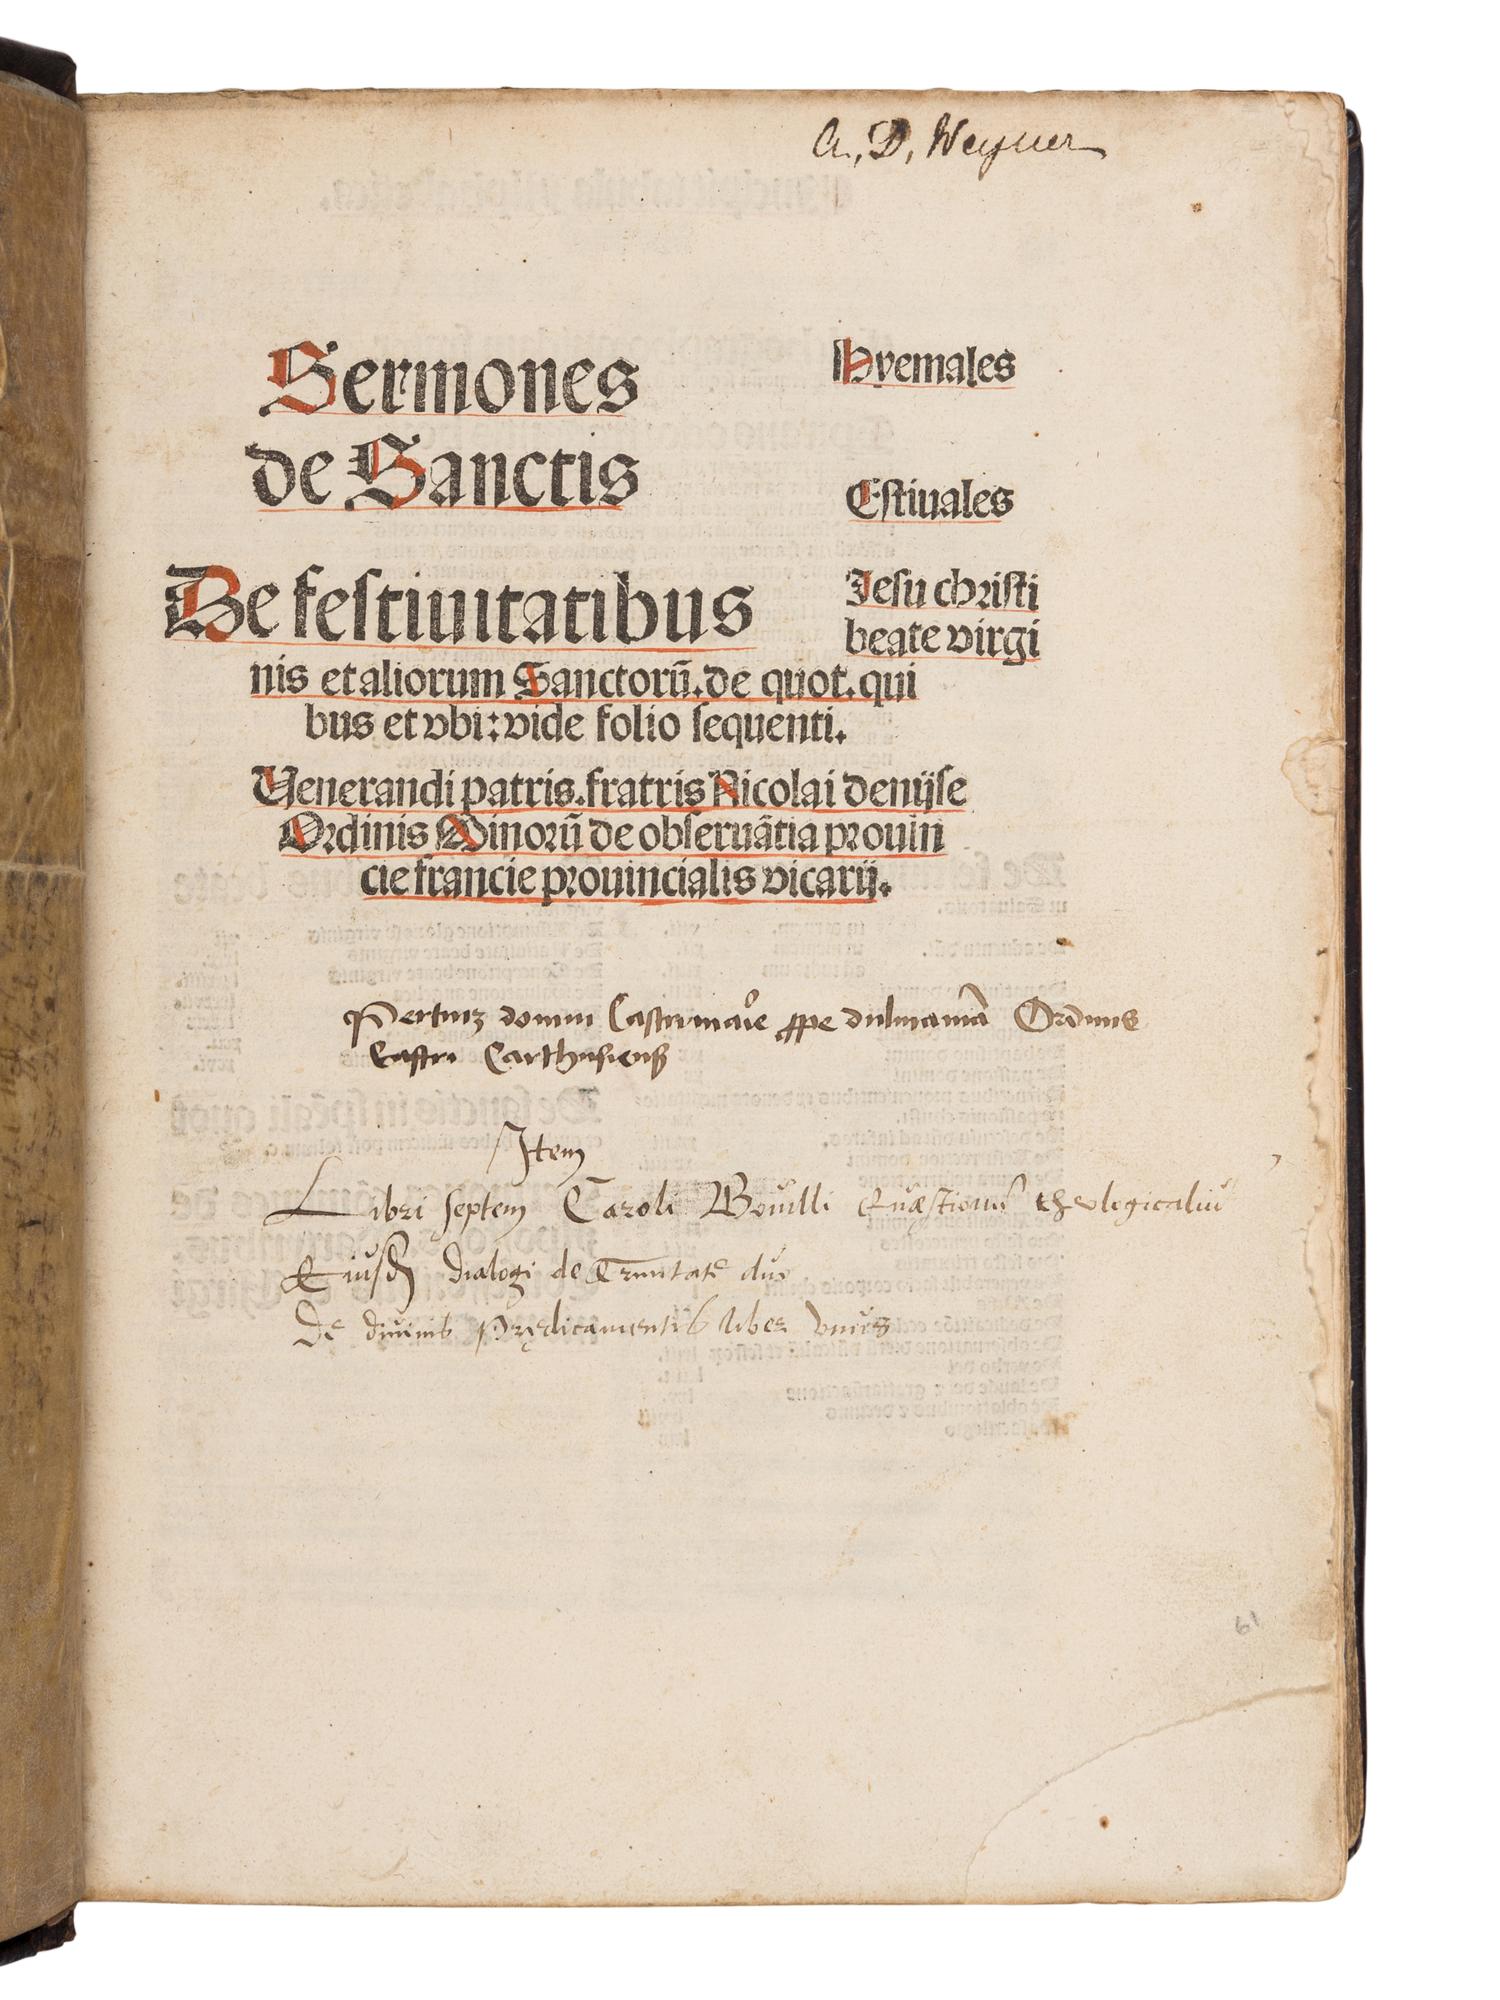 a. D. Weyner
Sermones
de Sanctis
Hyemales
Estiuales
De festiuitatibus
Jesu christi
beate virgi
nis et aliorum Sanctorũ. de quot. qui
bus et vbi: vide folio sequenti.
Venerandi patris. fratris Nicolai denijse
Ordinis Minorũ de obseruãtia prouin
cie francie prouincialis vicarij.
domui prope Ordinis
Castri Carthusiens
Item
Libri septem Caroli Bouilli Quæstionũ theologicaliũ
Eiusdẽ dialogi de Trinitate duo
De diuinis prędicamentis liber vnus
61